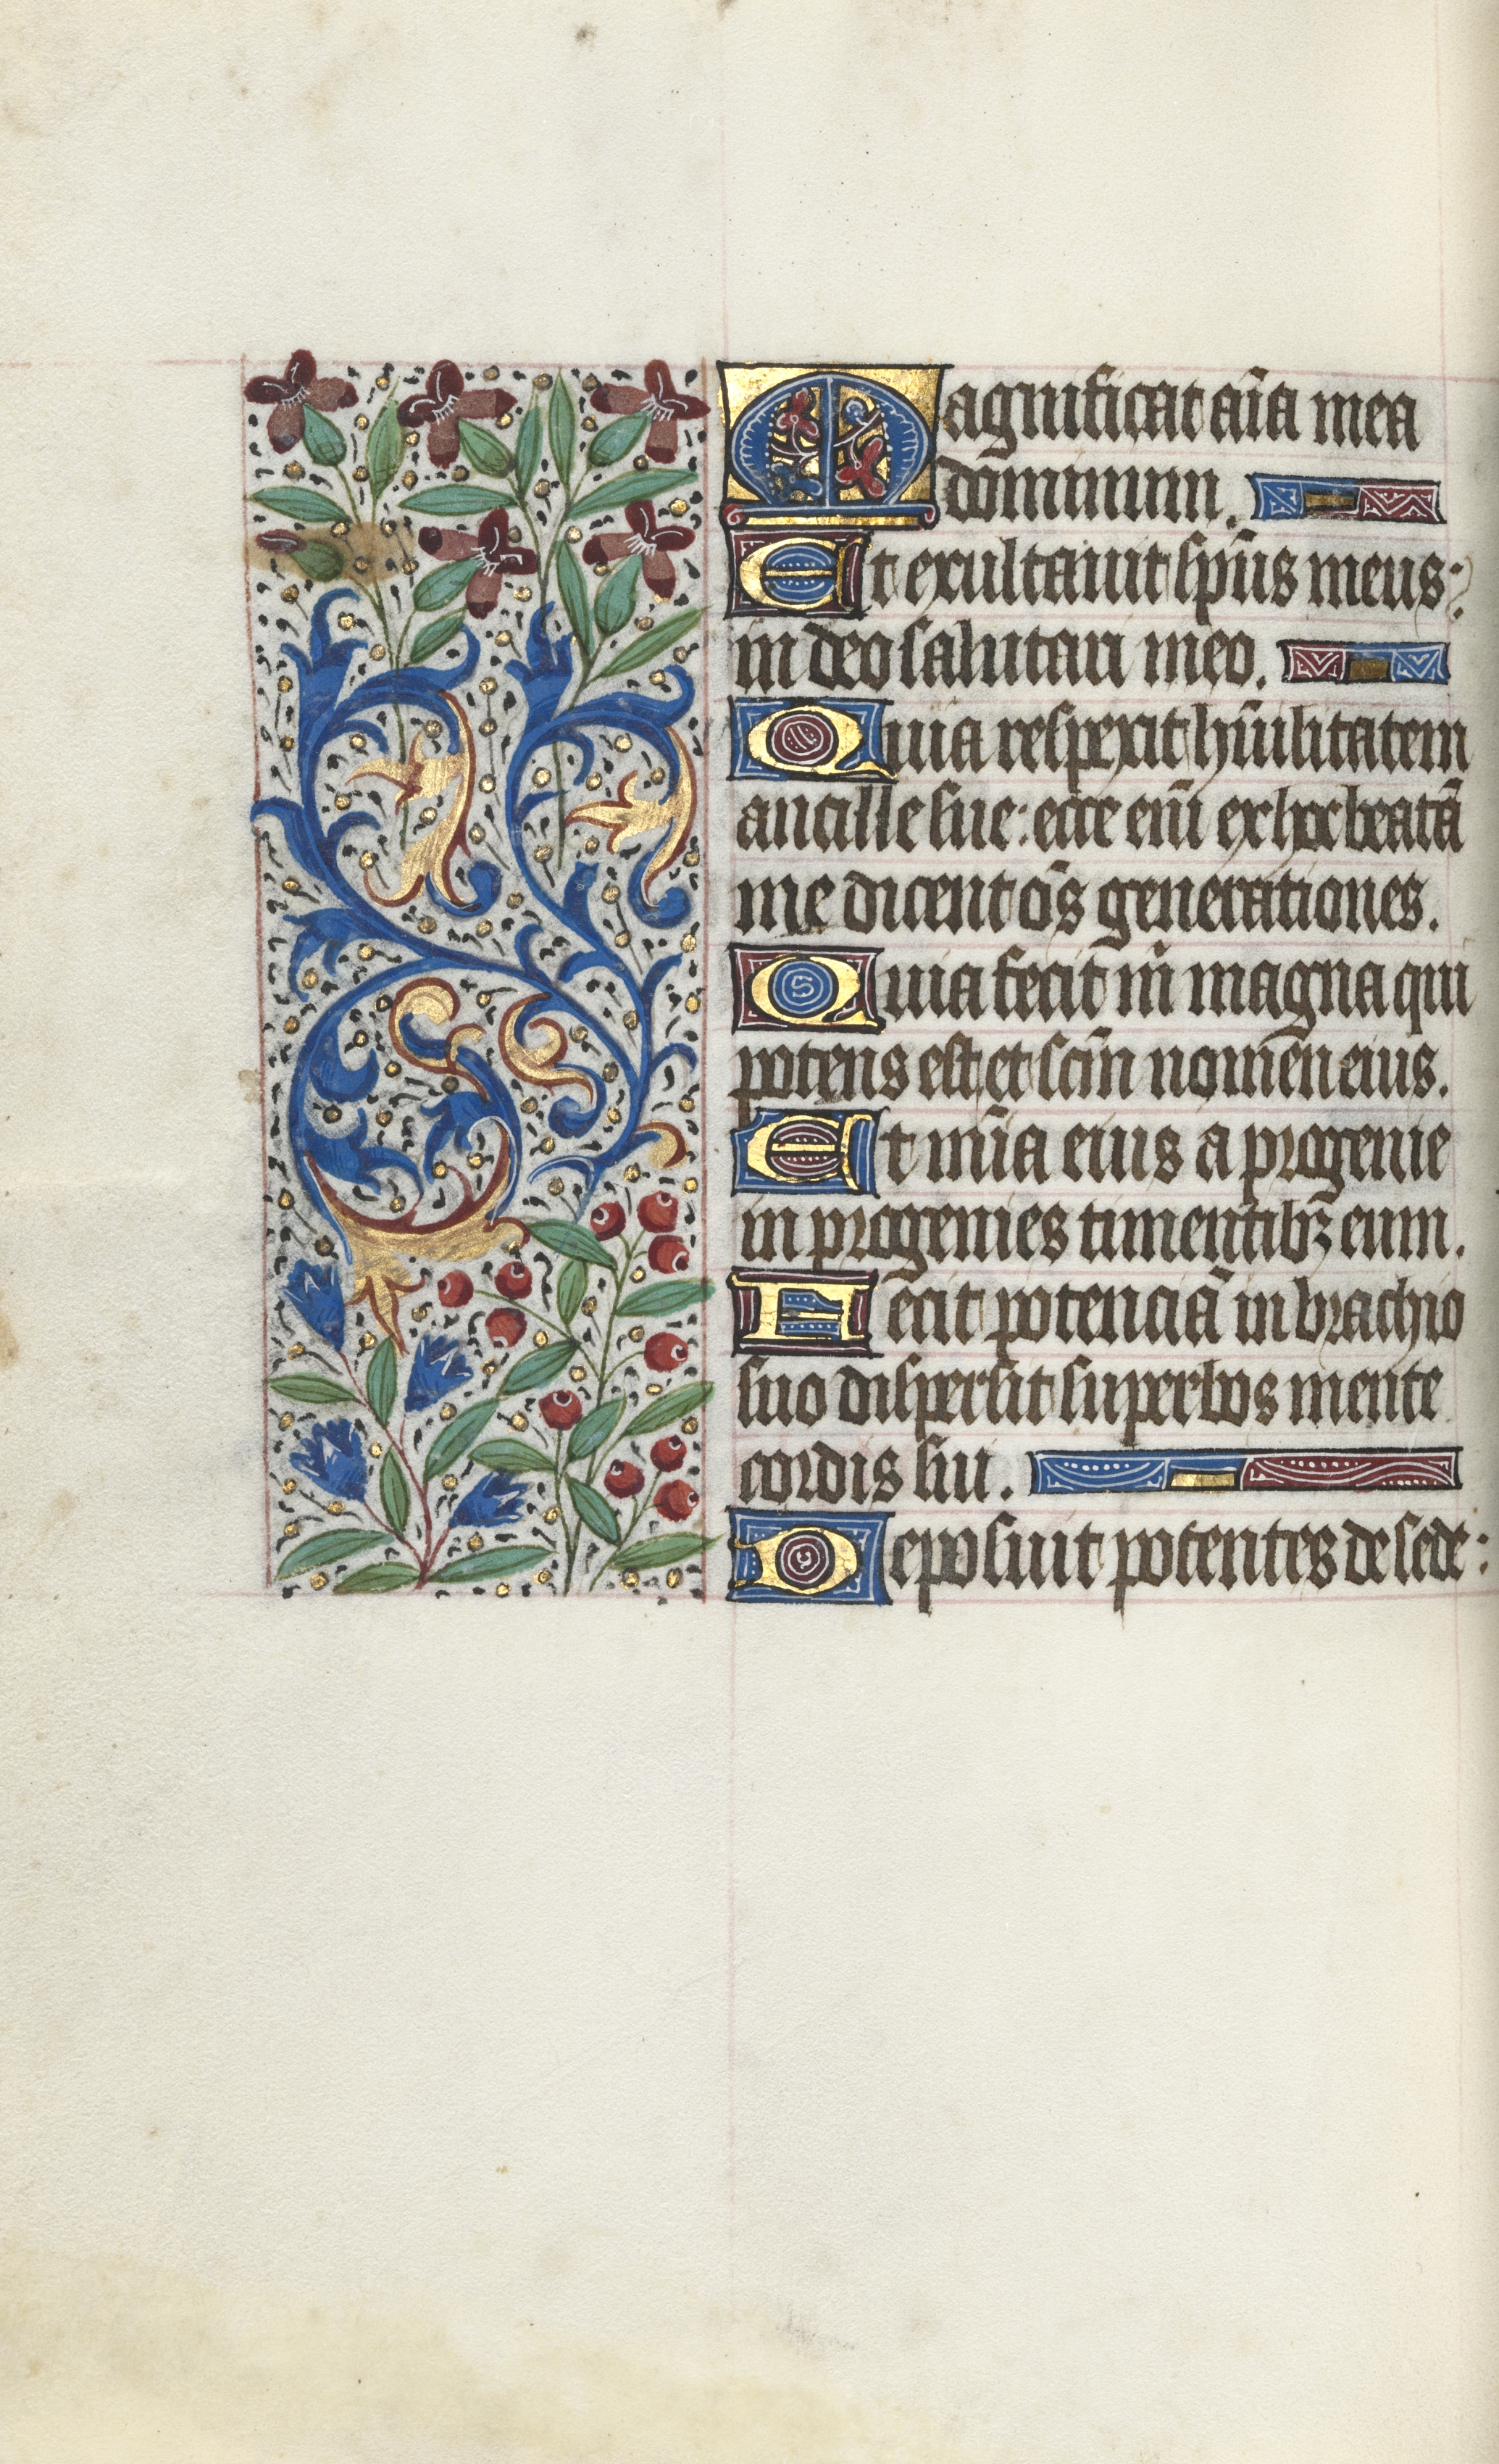 Magnificat aīa mea
dominum.
Et exultauit sp̄us meus:
in deo salutari meo.
Quia respexit hūilitatem
ancille sue: ecce eīm ex hoc beatā
me dicent oēs generationes.
Quia fecit m̄ magna qui
potens est et scm̄ nomen eius.
Et mīa eius a progenie
in progenies timentibꝫ eum.
Fecit potenciā in brachio
suo dispersit superbos mente
cordis sui.
Deposuit potentes de sede: